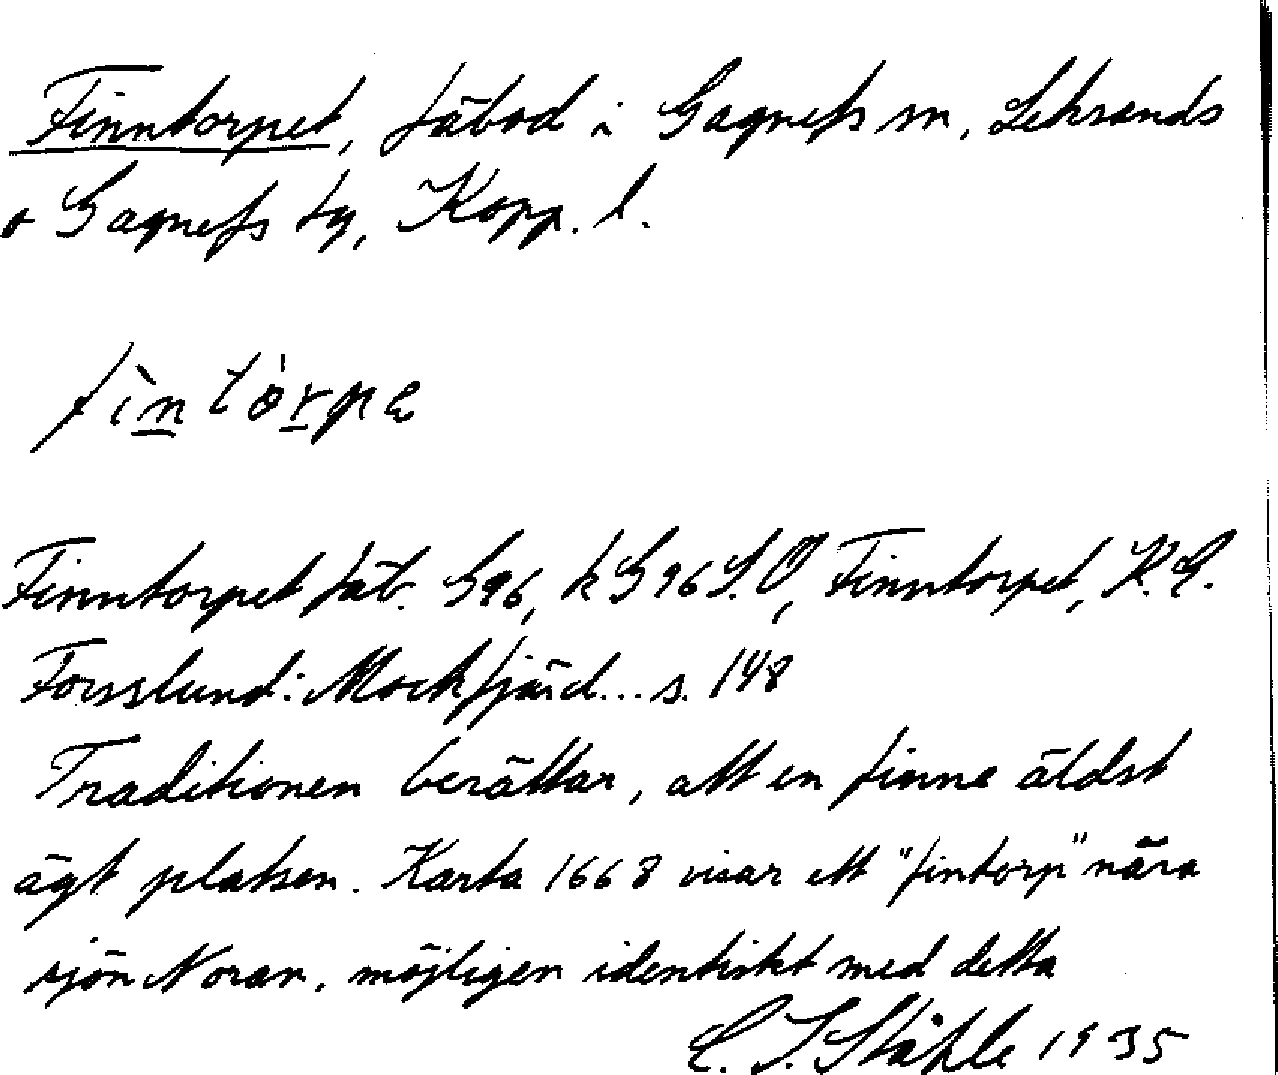 Finntorpet, fäbod i Gagnefs sn, Leksands
o Gagnefs tg, Kopp. l.
fìn tòrpe
Finntorpet fäb. G96, k G96 S.O, Finntorpet, K.E.
Forsslund: Mockfjärd... s. 148
Traditionen berättar, att en finne äldst
ägt platsen. Karta 1668 visar ett "fintorp" nära
sjön Noran, möjligen identiskt med detta
C. I. Ståhle 1935